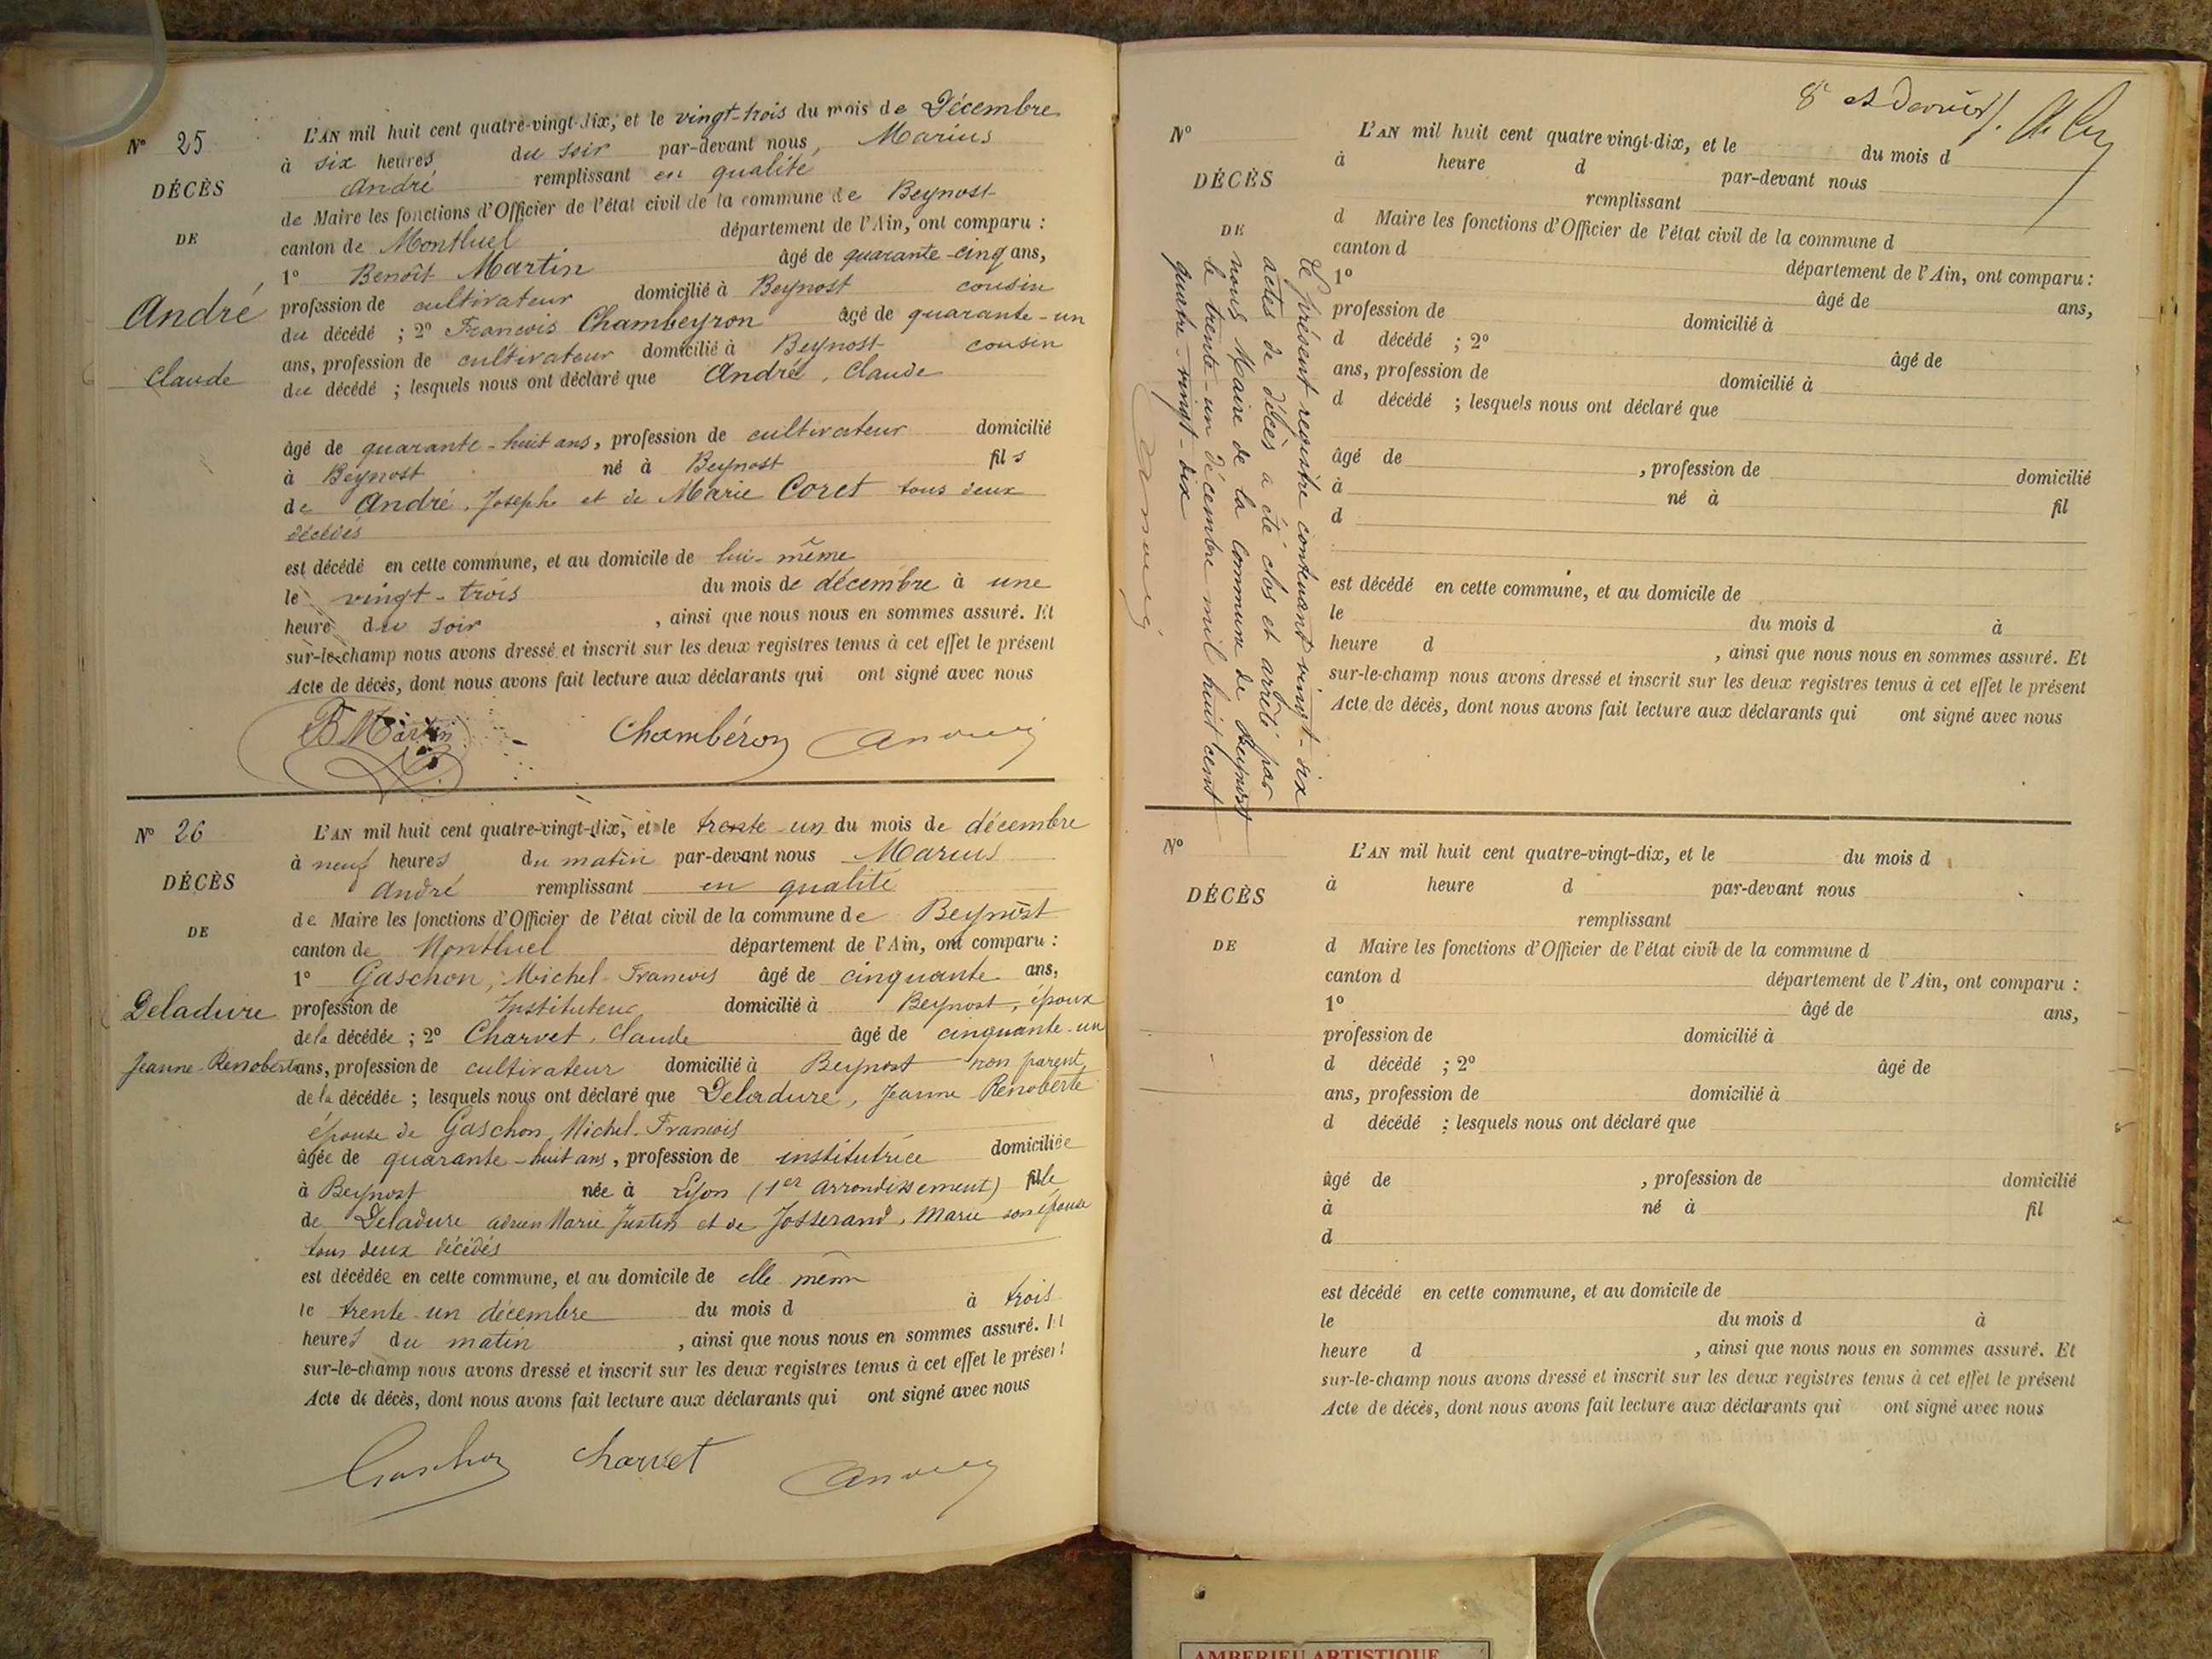 N° 25
DÉCÈS
DE
André
Claude
L'AN mil huit cent quatre-vingt-dix, et le vingt-trois du mois de Décembre
à six heures du soir par-devant nous, Marius
André remplissant en qualité
de Maire les fonctions d'Officier de l'état civil de la commune de Beynost
canton de Montluel département de l'Ain, ont comparu :
1° Benoît Martin âgé de quarante-cinq ans,
profession de cultivateur domicilié à Beynost cousin
du décédé ; 2° François Chambeyron âgé de quarante-un
ans, profession de cultivateur domicilié à Beynost cousin
du décédé ; lesquels nous ont déclaré que André, Claude
âgé de quarante-huit ans, profession de cultivateur domicilié
à Beynost né à Beynost fils
de André, Joseph et de Marie Coret tous deux
décédés
est décédé en cette commune, et au domicile de lui-même
le vingt-trois du mois de décembre à une
heure du soir , ainsi que nous nous en sommes assuré. Et
sur-le-champ nous avons dressé et inscrit sur les deux registres tenus à cet effet le présent
Acte de décès, dont nous avons fait lecture aux déclarants qui ont signé avec nous
B Martin Chambéron
N° 26
DÉCÈS
DE
Deladure
Jeanne-Renoberte
L'AN mil huit cent quatre-vingt-dix, et le trente-un du mois de décembre
à neuf heures du matin par-devant nous Marius
André remplissant en qualité
de Maire les fonctions d'Officier de l'état civil de la commune de Beynost
canton de Montluel département de l'Ain, ont comparu :
1° Gaschon, Michel-François âgé de cinquante ans,
profession de Instituteur domicilié à Beynost, époux
de la décédée ; 2° Charvet, Claude âgé de cinquante-un
ans, profession de cultivateur domicilié à Beynost non parent
de la décédée ; lesquels nous ont déclaré que Deladure, Jeanne Renoberte
épouse de Gaschon Michel-François
âgée de quarante-huit ans, profession de institutrice domiciliée
à Beynost née à Lyon (1er arrondissement) fille
de Deladure adrien Marie Justin et de Josserand, Marie son épouse
tous deux décédés
est décédée en cette commune, et au domicile de elle même
le trente-un décembre du mois d à trois
heures du matin , ainsi que nous nous en sommes assuré. Et
sur-le-champ nous avons dressé et inscrit sur les deux registres tenus à cet effet le présent
Acte de décès, dont nous avons fait lecture aux déclarants qui ont signé avec nous
Gaschon Charvet
8e et dernier f.
N°
DÉCÈS
DE
L'AN mil huit cent quatre vingt-dix, et le du mois d
à heure d par-devant nous
remplissant
d Maire les fonctions d'Officier de l'état civil de la commune d
canton d département de l'Ain, ont comparu :
1° âgé de ans,
profession de domicilié à
d décédé ; 2° âgé de
ans, profession de domicilié à
d décédé ; lesquels nous ont déclaré que
âgé de , profession de domicilié
à né à fil
d
est décédé en cette commune, et au domicile de
le du mois d à
heure d , ainsi que nous nous en sommes assuré. Et
sur-le-champ nous avons dressé et inscrit sur les deux registres tenus à cet effet le présent
Acte de décès, dont nous avons fait lecture aux déclarants qui ont signé avec nous
Le présent registre contenant vingt-six
actes de décès a été clos et arrêté par
nous Maire de la Commune de Beynost
le trente-un décembre mil huit cent
quatre-vingt-dix
N°
DÉCÈS
DE
L'AN mil huit cent quatre-vingt-dix, et le du mois d
à heure d par-devant nous
remplissant
d Maire les fonctions d'Officier de l'état civil de la commune d
canton d département de l'Ain, ont comparu :
1° âgé de ans,
profession de domicilié à
d décédé ; 2° âgé de
ans, profession de domicilié à
d décédé ; lesquels nous ont déclaré que
âgé de , profession de domicilié
à né à fil
d
est décédé en cette commune, et au domicile de
le du mois d à
heure d , ainsi que nous nous en sommes assuré. Et
sur-le-champ nous avons dressé et inscrit sur les deux registres tenus à cet effet le présent
Acte de décès, dont nous avons fait lecture aux déclarants qui ont signé avec nous
AMBERIEU ARTISTIQUE